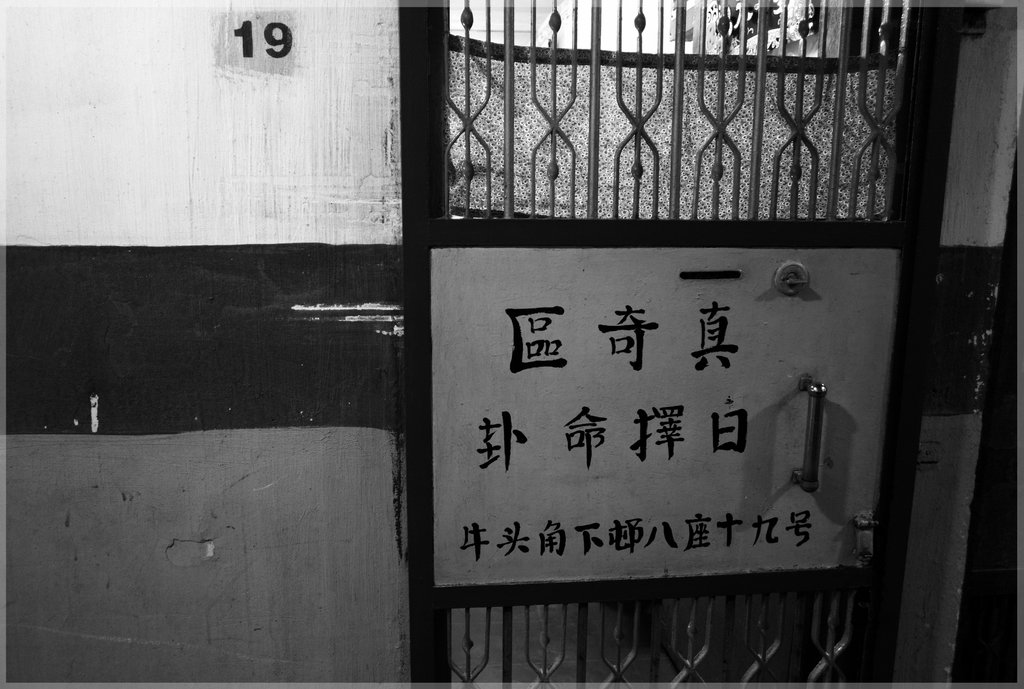 19
區奇真
卦命擇日
牛头角下邨八座十九号